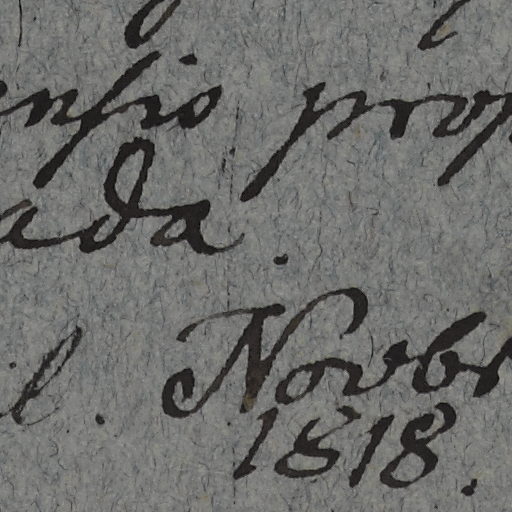 ensio prop
ada.
l. Novbr
1818.